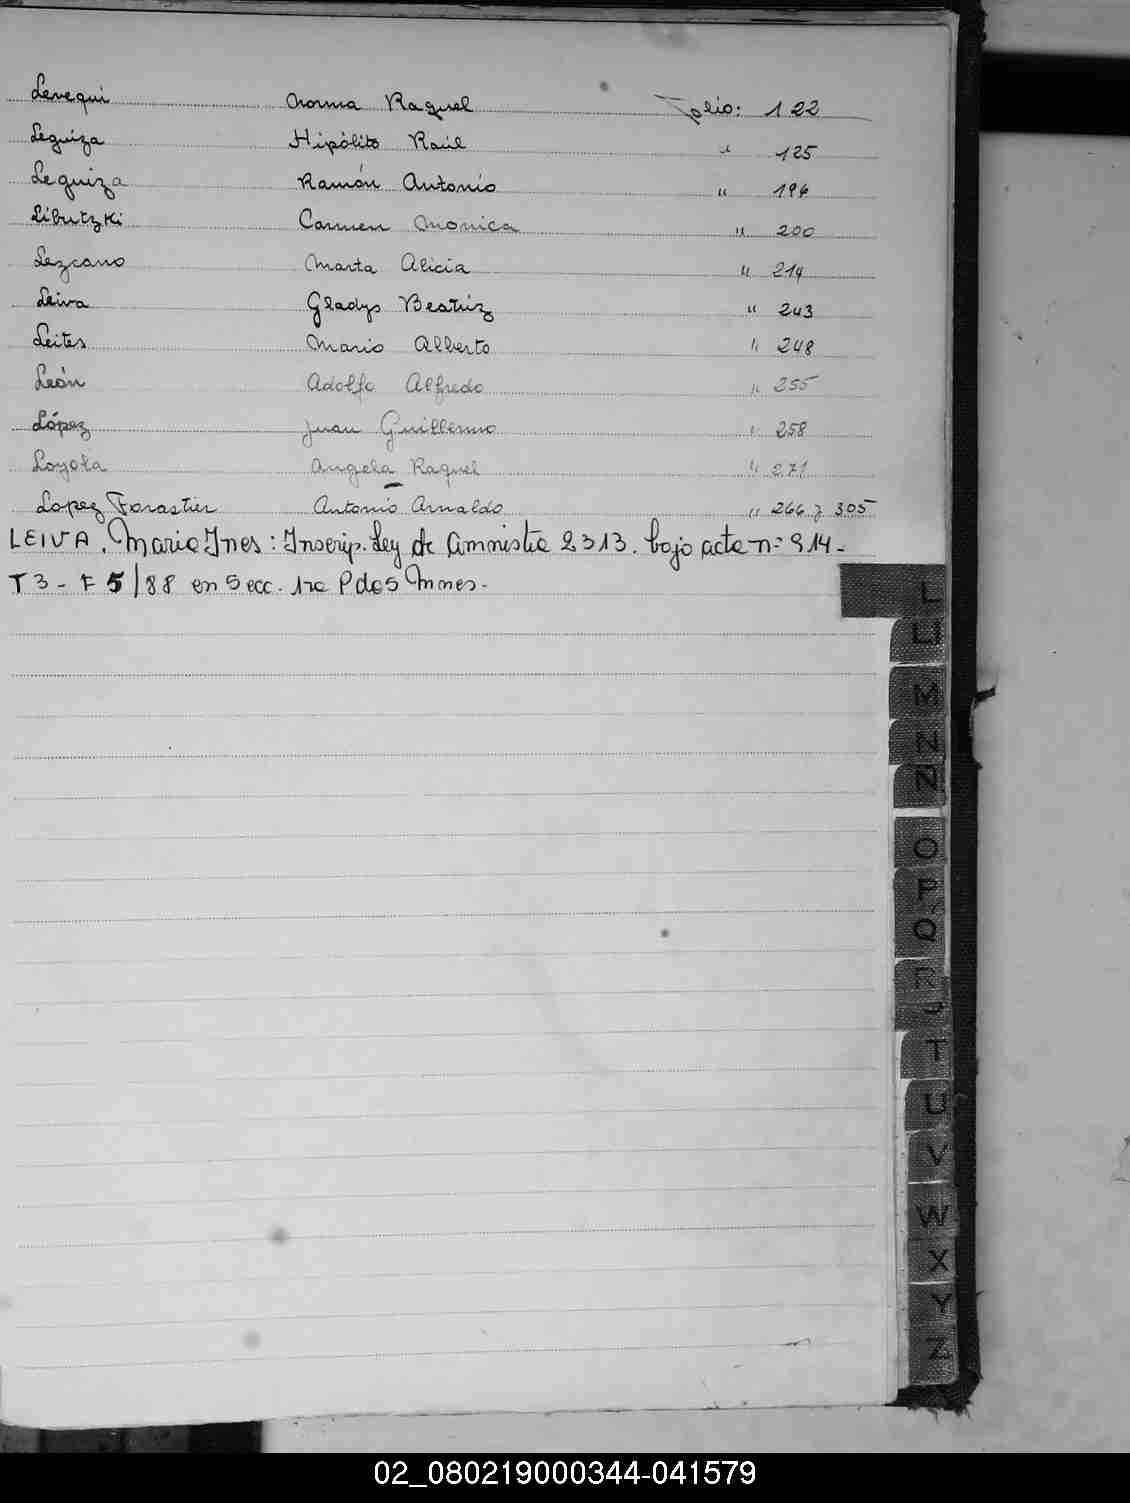 Lenequi Norma Raquel Folio: 122
Leguiza Hipólito Raúl " 125
Leguiza Ramón Antonio " 194
Libutzki Carmen Monica " 200
Lezcano Marta Alicia " 214
Leiva Gladys Beatriz " 243
Leites Mario Alberto " 248
León Adolfo Alfredo " 255
López Juan Guillermo " 258
Loyola Angela Raquel " 271
Lopez Forastier Antonio Arnaldo " 266 y 305
LEIVA, Maria Ines: Inscrip. Ley de Amnistia 2313. bajo acta nº 914-
T3 - F 5/88 en Secc. 1ra Pdas Mnes.-
L
LL
M
N
Ñ
O
P
Q
R
T
U
V
W
X
Y
Z
02_080219000344-041579